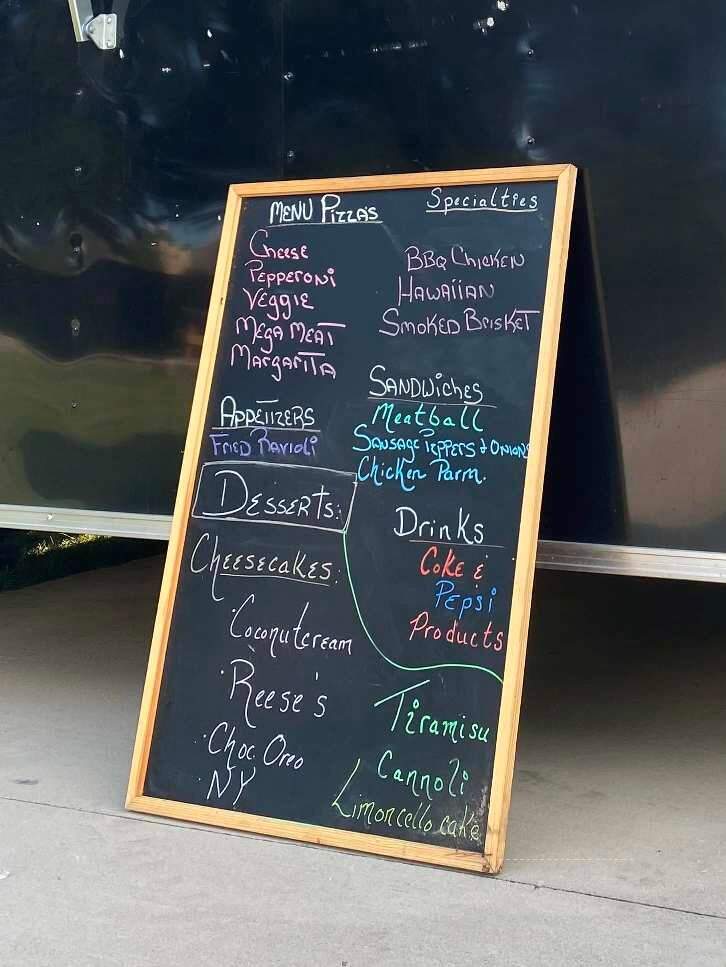 MENU PIZZA'S
Cheese
Pepperoni
Veggie
Mega Meat
Margarita
Specialties
BBQ Chicken
Hawaiian
Smoked Brisket
Appetizers
Fried Ravioli
Sandwiches
Meatball
Sausage Peppers & Onions
Chicken Parm.
Drinks
Coke &
Pepsi
Products
Desserts:
Cheesecakes:
·Coconutcream
·Reese's
·Choc. Oreo
·NY
Tiramisu
Cannoli
Limoncello cake